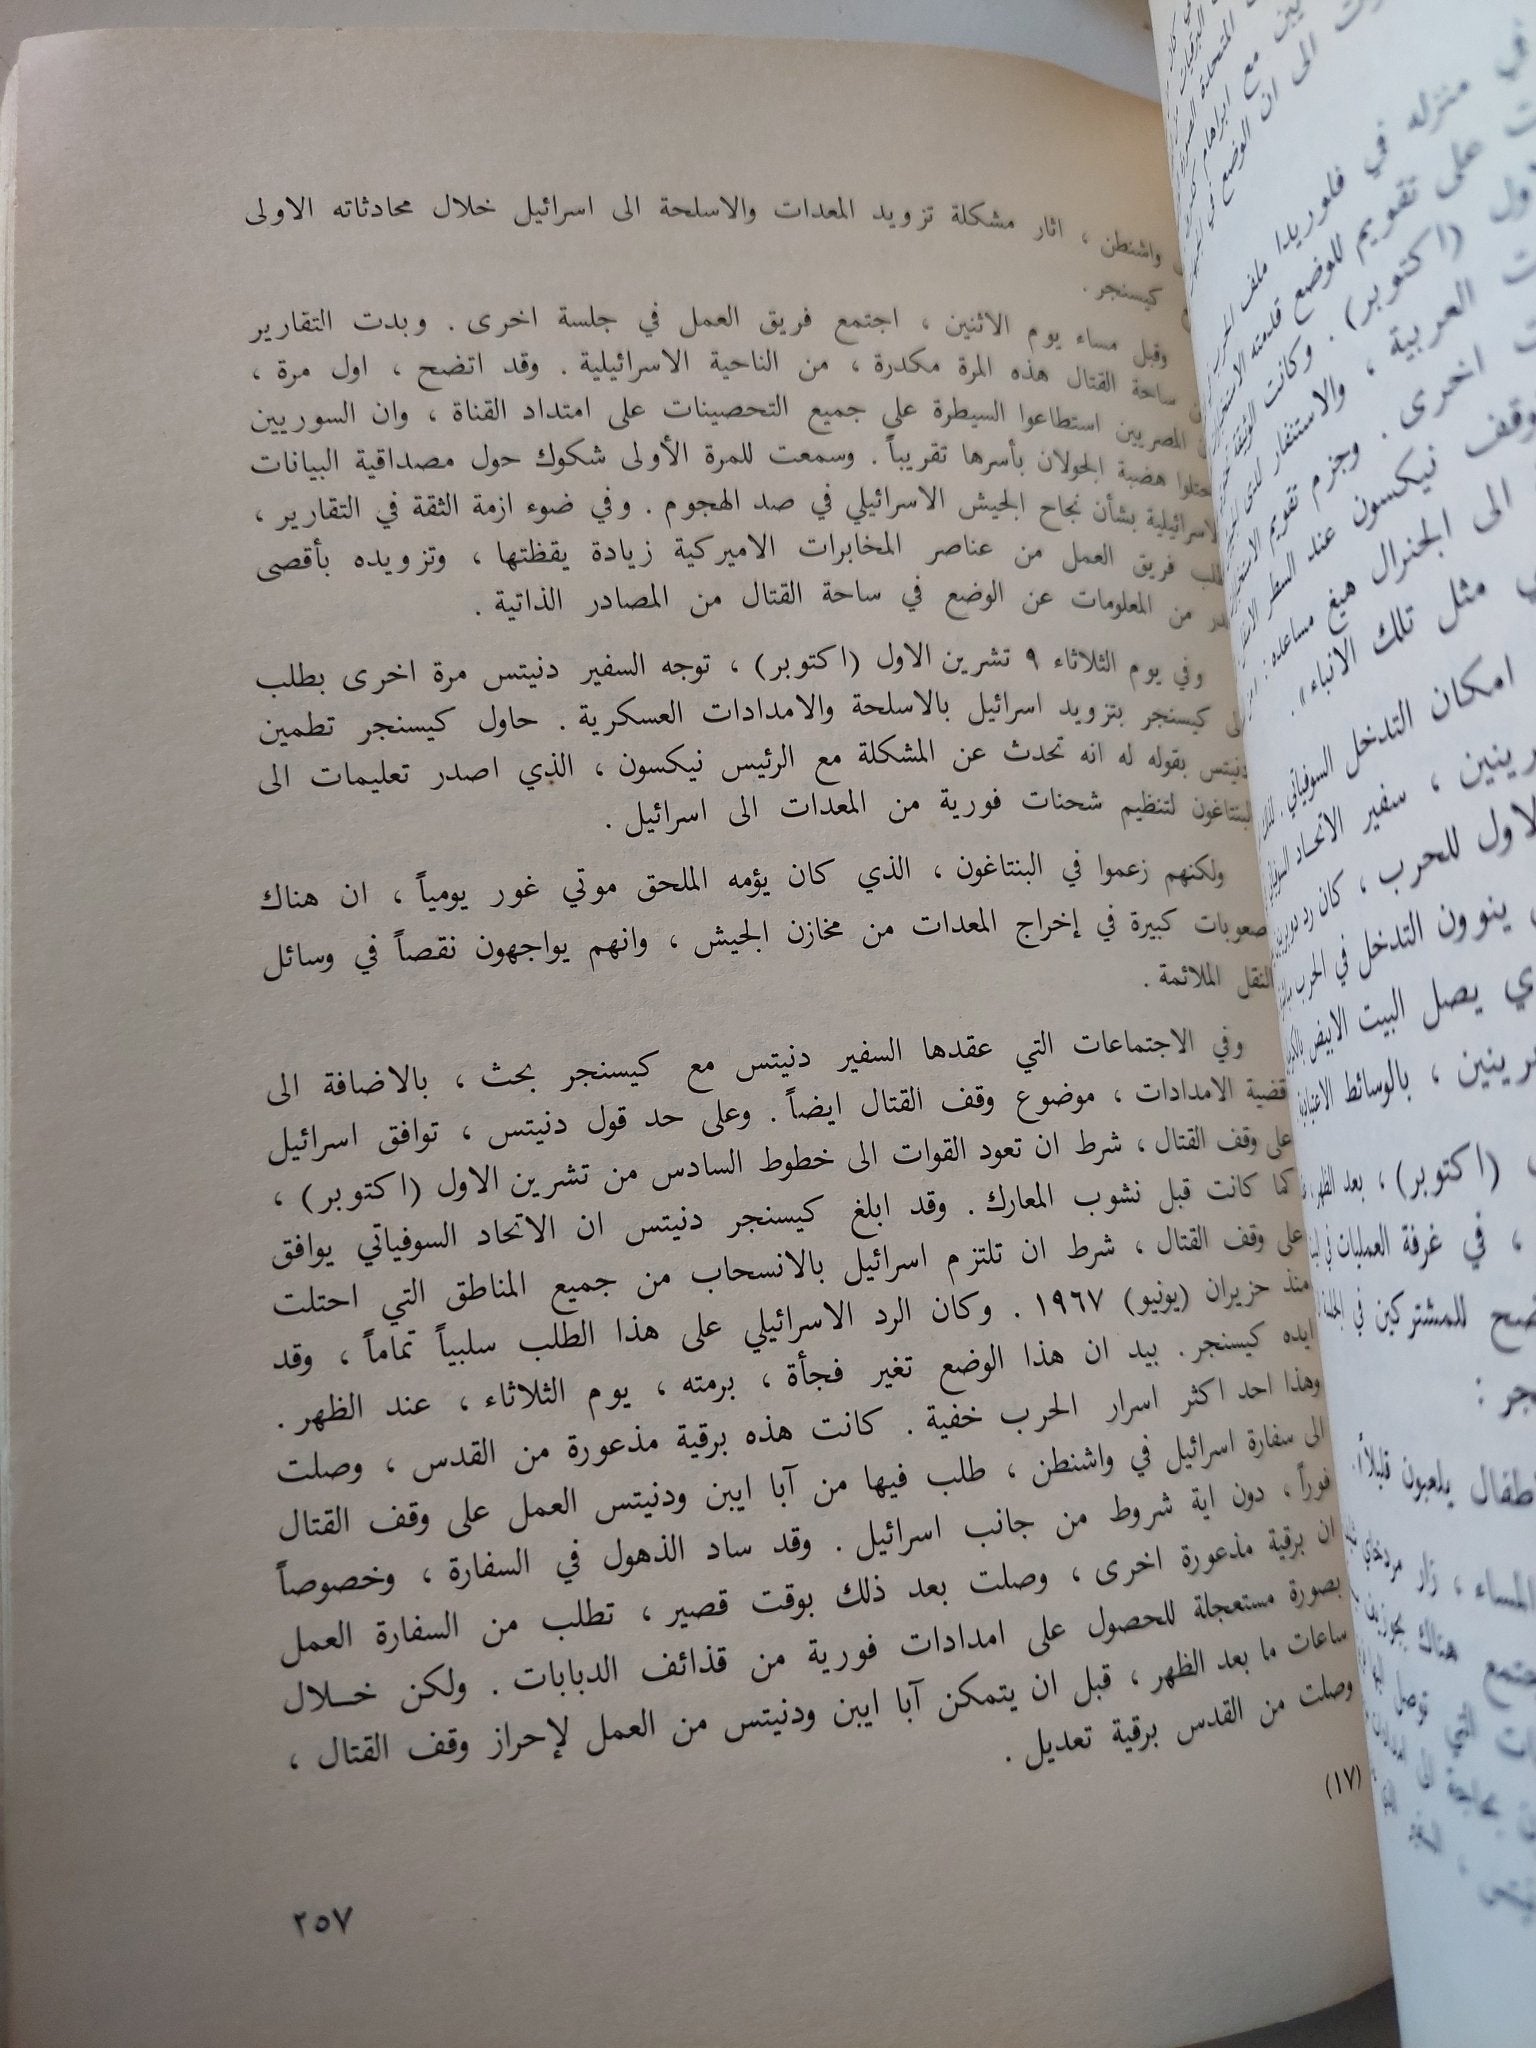 واشنطن ، اثار مشكلة تزويد المعدات والاسلحة الى اسرائيل خلال محادثاته الاولى
كيسنجر .
وقبل مساء يوم الاثنين ، اجتمع فريق العمل في جلسة اخرى . وبدت التقارير
ساحة القتال هذه المرة مكدرة ، من الناحية الاسرائيلية . وقد اتضح ، اول مرة ،
المصريين استطاعوا السيطرة على جميع التحصينات على امتداد القناة ، وان السوريين
هضبة الجولان بأسرها تقريباً . وسمعت للمرة الأولى شكوك حول مصداقية البيانات
الاسرائيلية بشأن نجاح الجيش الاسرائيلي في صد الهجوم . وفي ضوء ازمة الثقة في التقارير ،
فريق العمل من عناصر المخابرات الاميركية زيادة يقظتها ، وتزويده بأقصى
من المعلومات عن الوضع في ساحة القتال من المصادر الذاتية .
وفي يوم الثلاثاء ٩ تشرين الاول (اكتوبر) ، توجه السفير دنيتس مرة اخرى بطلب
الى كيسنجر بتزويد اسرائيل بالاسلحة والامدادات العسكرية . حاول كيسنجر تطمين
دنيتس بقوله له انه تحدث عن المشكلة مع الرئيس نيكسون ، الذي اصدر تعليمات الى
البنتاغون لتنظيم شحنات فورية من المعدات الى اسرائيل .
ولكنهم زعموا في البنتاغون ، الذي كان يؤمه الملحق موتي غور يومياً ، ان هناك
صعوبات كبيرة في إخراج المعدات من مخازن الجيش ، وانهم يواجهون نقصاً في وسائل
النقل الملائمة .
وفي الاجتماعات التي عقدها السفير دنيتس مع كيسنجر بحث ، بالاضافة الى
قضية الامدادات ، موضوع وقف القتال ايضاً . وعلى حد قول دنيتس ، توافق اسرائيل
على وقف القتال ، شرط ان تعود القوات الى خطوط السادس من تشرين الاول (اكتوبر) ،
كما كانت قبل نشوب المعارك . وقد ابلغ كيسنجر دنيتس ان الاتحاد السوفياتي يوافق
على وقف القتال ، شرط ان تلتزم اسرائيل بالانسحاب من جميع المناطق التي احتلت
منذ حزيران (يونيو) ١٩٦٧ . وكان الرد الاسرائيلي على هذا الطلب سلبياً تماماً ، وقد
ايده كيسنجر . بيد ان هذا الوضع تغير فجأة ، برمته ، يوم الثلاثاء ، عند الظهر .
وهذا احد اكثر اسرار الحرب خفية . كانت هذه برقية مذعورة من القدس ، وصلت
الى سفارة اسرائيل في واشنطن ، طلب فيها من آبا ايبن ودنيتس العمل على وقف القتال
فوراً ، دون اية شروط من جانب اسرائيل . وقد ساد الذهول في السفارة ، وخصوصاً
ان برقية مذعورة اخرى ، وصلت بعد ذلك بوقت قصير ، تطلب من السفارة العمل
بصورة مستعجلة للحصول على امدادات فورية من قذائف الدبابات . ولكن خلال
ساعات ما بعد الظهر ، قبل ان يتمكن آبا ايبن ودنيتس من العمل لإحراز وقف القتال ،
وصلت من القدس برقية تعديل .
(١٧)
٢٥٧
مع ابراهام
الى ان الوضع في
في منزله في فلوريدا ملف
على تقويم للوضع قدمته
(اكتوبر) . وكانت
العربية ، والاستنفار
اخرى . وجزم تقويم
نيكسون عند السطر
الى الجنرال هيغ مساعده :
مثل تلك الانباء» .
امكان التدخل السوفياتي .
، سفير الاتحاد
للحرب ، كان رد
ينوون التدخل في الحرب
يصل البيت الابيض
، بالوسائط
(اكتوبر) ، بعد
، في غرفة العمليات
للمشتركين في
يلعبون قليلاً
المساء ، زار مردخاي
هناك